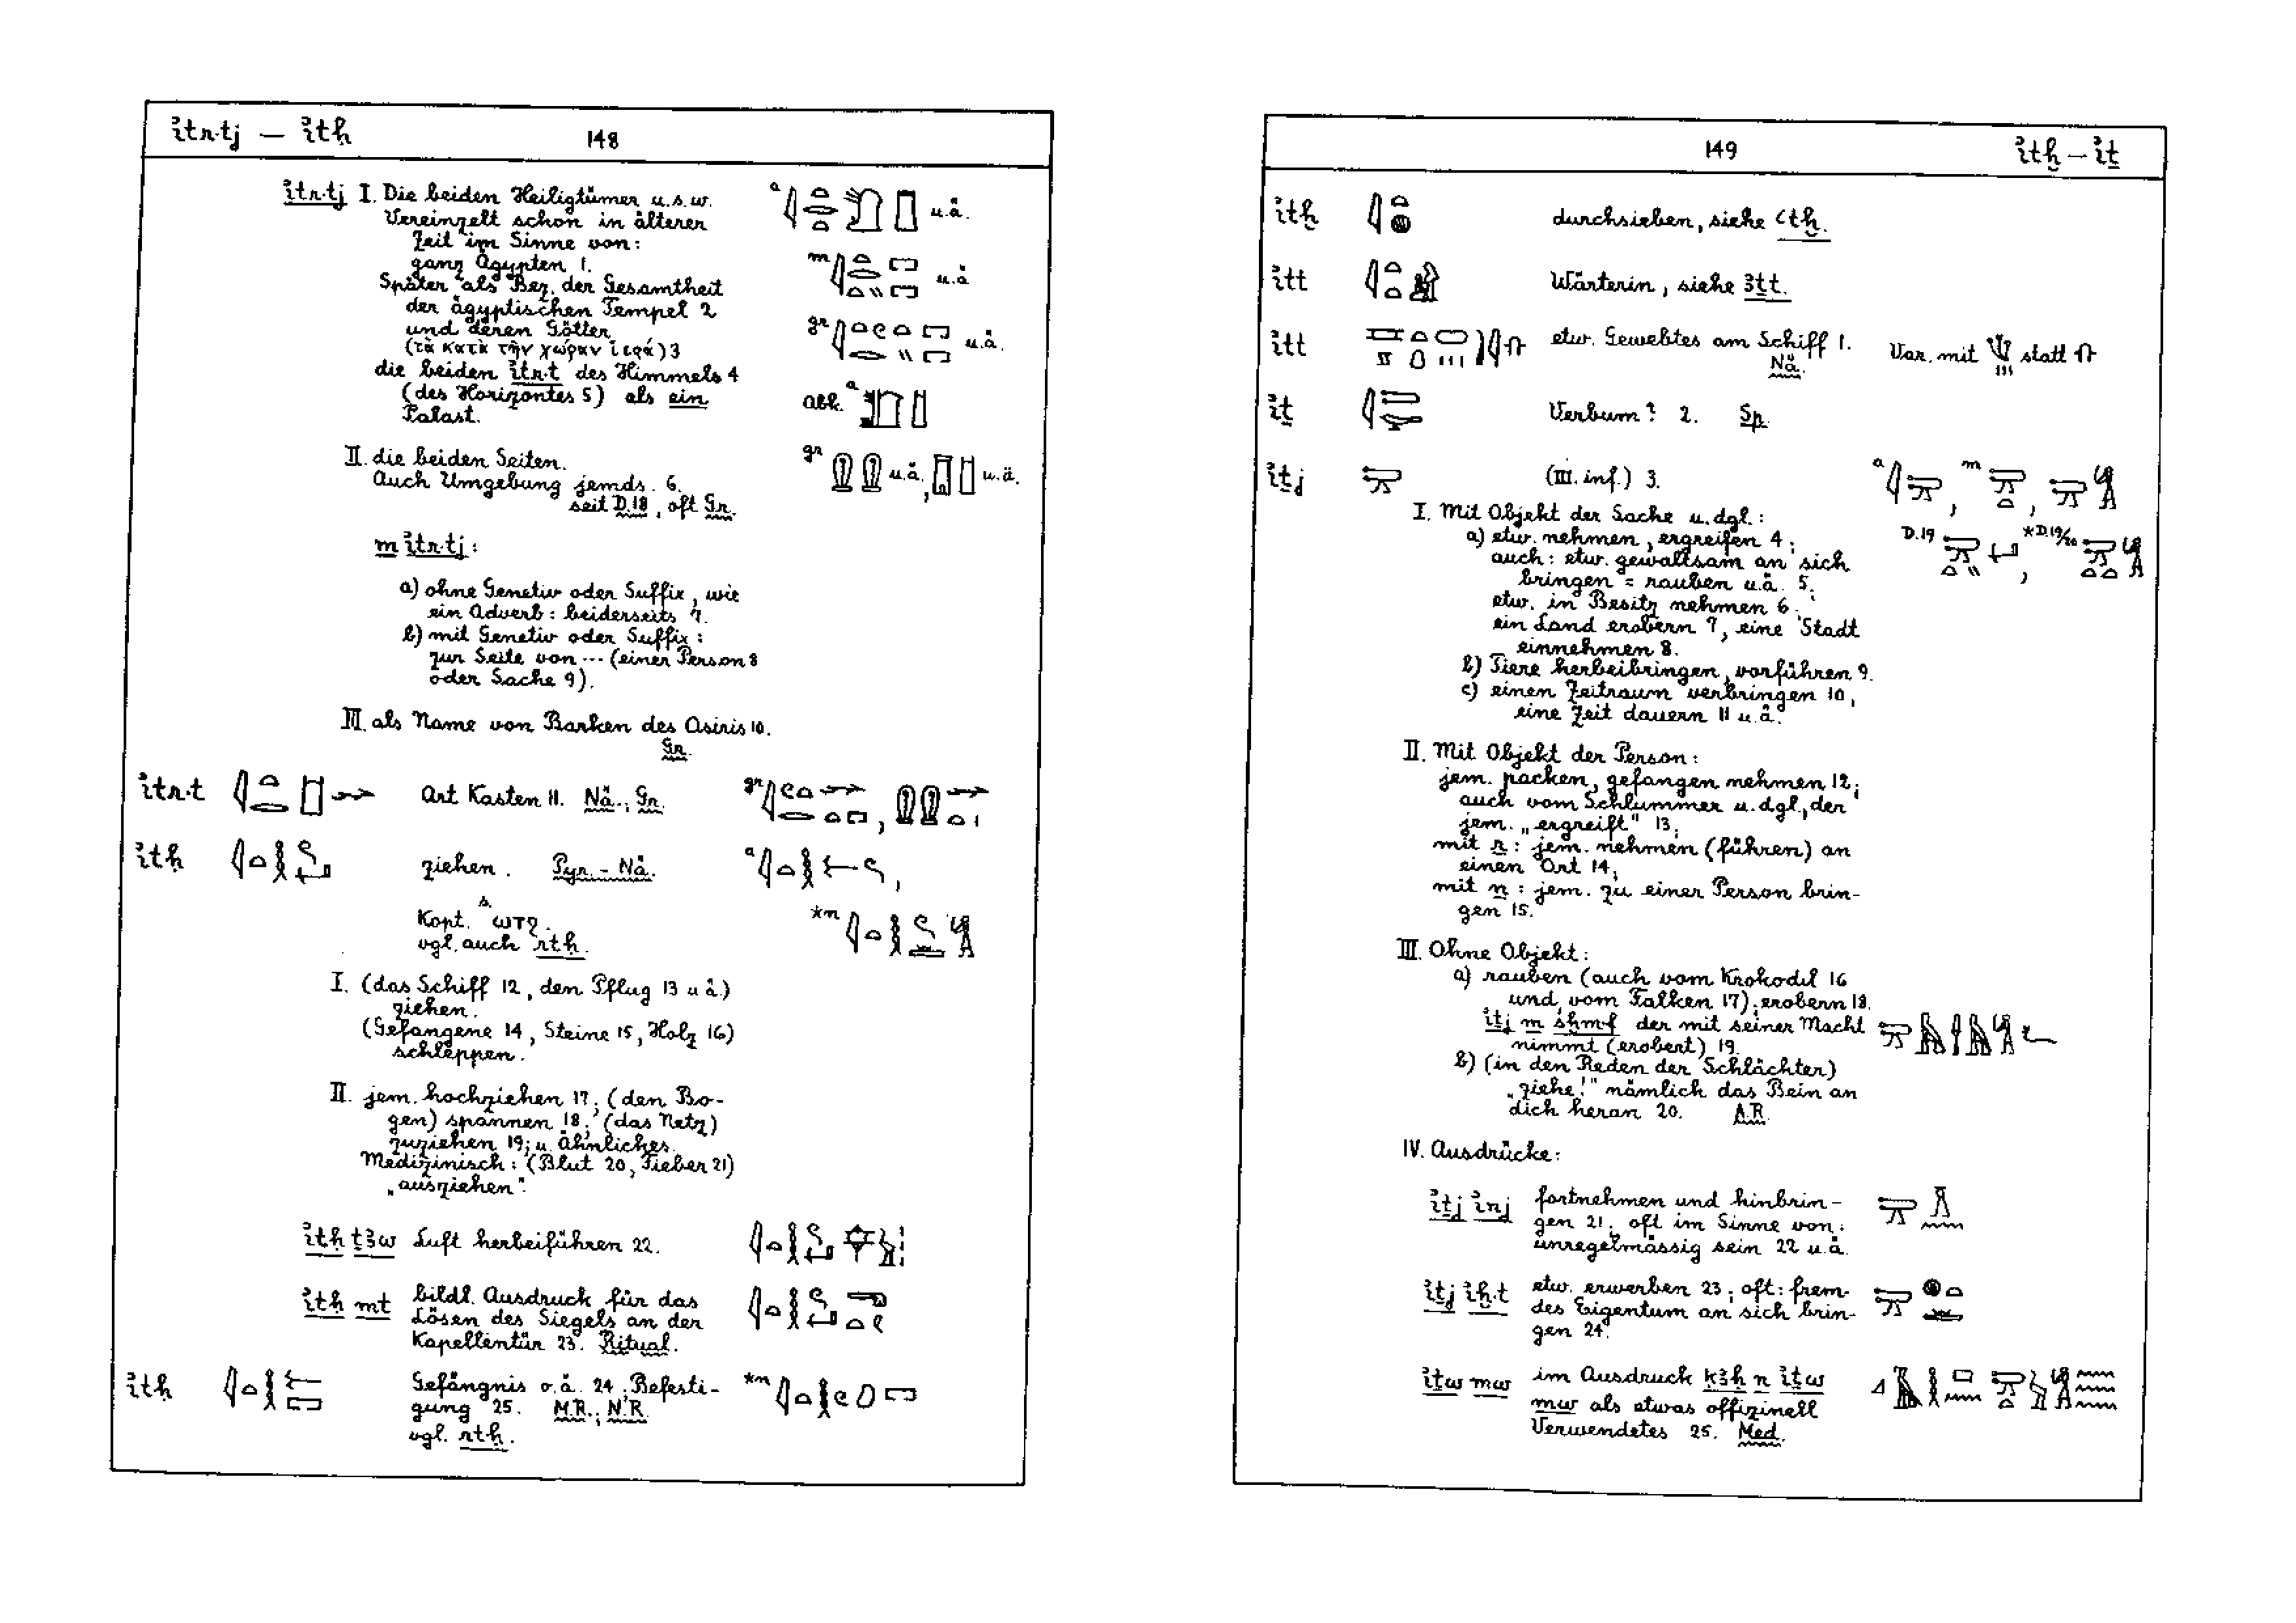 ỉtr·tj — ỉtḥ
148
ỉtr·tj I. Die beiden Heiligtümer u.s.w.
Vereinzelt schon in älterer
Zeit im Sinne von:
ganz Ägypten 1.
Später als Bez. der Gesamtheit
der ägyptischen Tempel 2
und deren Götter
(τὰ κατὰ τὴν χώραν ἱερά) 3
die beiden ỉtr·t des Himmels 4
(des Horizontes 5) als ein
Palast.
a u.ä.
m u.ä
gr u.ä.
abk. a
II. die beiden Seiten.
Auch Umgebung jemds. 6.
seit D.18, oft Gr.
gr u.ä., u.ä.
m ỉtr·tj:
a) ohne Genetiv oder Suffix, wie
ein Adverb: beiderseits 7.
b) mit Genetiv oder Suffix:
zur Seite von ... (einer Person 8
oder Sache 9).
III. als Name von Barken des Osiris 10.
Gr.
ỉtr·t Art Kasten 11. Nä., Gr. gr ,
ỉtḥ ziehen. Pyr. - Nä. a ,
Kopt. s. ⲱⲧϩ. *n
vgl. auch rtḥ.
I. (das Schiff 12, den Pflug 13 u.ä.)
ziehen.
(Gefangene 14, Steine 15, Holz 16)
schleppen.
II. jem. hochziehen 17; (den Bo-
gen) spannen 18; (das Netz)
zuziehen 19; u. Ähnliches.
Medizinisch: (Blut 20, Fieber 21)
„ausziehen".
ỉtḥ ṯꜣw Luft herbeiführen 22.
ỉtḥ mt bildl. Ausdruck für das
Lösen des Siegels an der
Kapellentür 23. Ritual.
ỉtḥ Gefängnis o.ä. 24; Befesti- *n
gung 25. M.R.; N.R.
vgl. rtḥ.
149
ỉtḫ — ỉṯ
ỉtḫ durchsieben, siehe ꜥtḫ.
ỉtt Wärterin, siehe ꜣṯt.
ỉtt etw. Gewebtes am Schiff 1. Var. mit statt
Nä.
ỉṯ Verbum? 2. Sp.
ỉṯj (III. inf.) 3. a , m ,
D.19 , *D.19/20
I. Mit Objekt der Sache u.dgl.:
a) etw. nehmen, ergreifen 4;
auch: etw. gewaltsam an sich
bringen = rauben u.ä. 5;
etw. in Besitz nehmen 6.
ein Land erobern 7, eine Stadt
einnehmen 8.
b) Tiere herbeibringen, vorführen 9.
c) einen Zeitraum verbringen 10,
eine Zeit dauern 11 u.ä.
II. Mit Objekt der Person:
jem. packen, gefangen nehmen 12;
auch vom Schlummer u.dgl., der
jem. „ergreift" 13;
mit r: jem. nehmen (führen) an
einen Ort 14;
mit n: jem. zu einer Person brin-
gen 15.
III. Ohne Objekt:
a) rauben (auch vom Krokodil 16
und vom Falken 17); erobern 18.
ỉṯj m sḫm·f der mit seiner Macht
nimmt (erobert) 19.
b) (in den Reden der Schlächter)
„ziehe!" nämlich das Bein an
dich heran 20. A.R.
IV. Ausdrücke:
ỉṯj ỉnj fortnehmen und hinbrin-
gen 21; oft im Sinne von:
unregelmässig sein 22 u.ä.
ỉṯj ỉḫ·t etw. erwerben 23; oft: frem-
des Eigentum an sich brin-
gen 24.
ỉṯw mw im Ausdruck ḳꜣḥ n ỉṯw
mw als etwas offizinell
Verwendetes 25. Med.